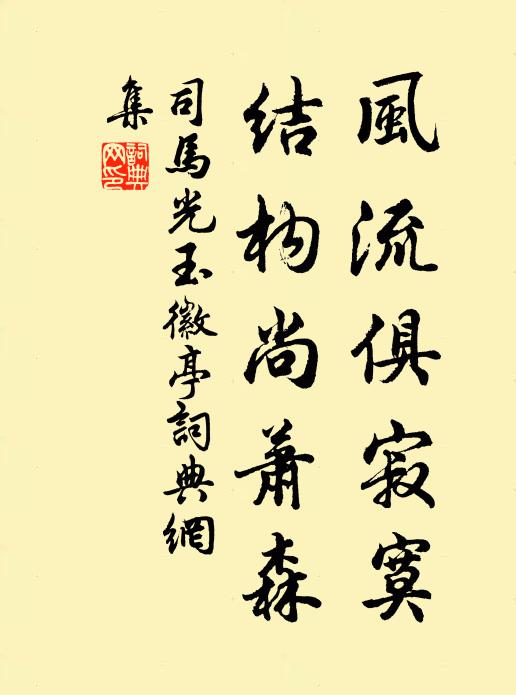 風流俱寂寞
結构尚蕭森
司馬光玉徽亭詞典網
集
詞典
网印